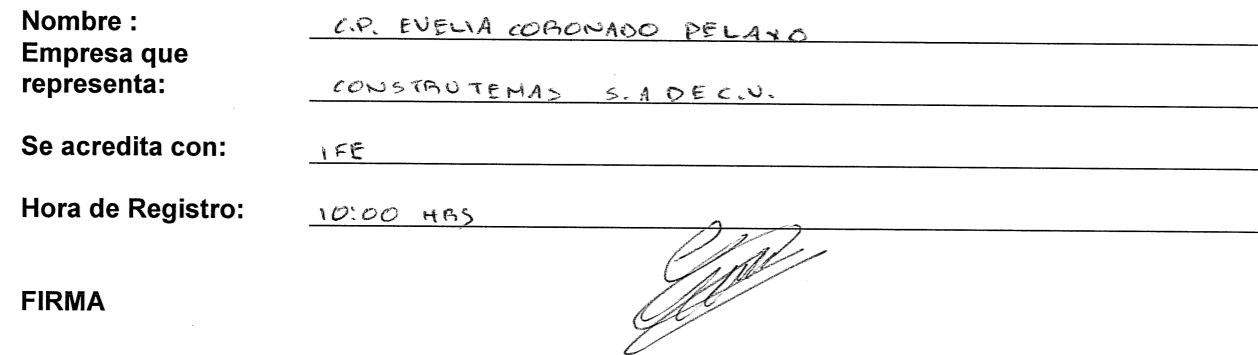 Nombre : C.P. EVELIA CORONADO PELAYO
Empresa que
representa: CONSTRUTEMAS S.A DE C.V.
Se acredita con: IFE
Hora de Registro: 10:00 HRS
FIRMA